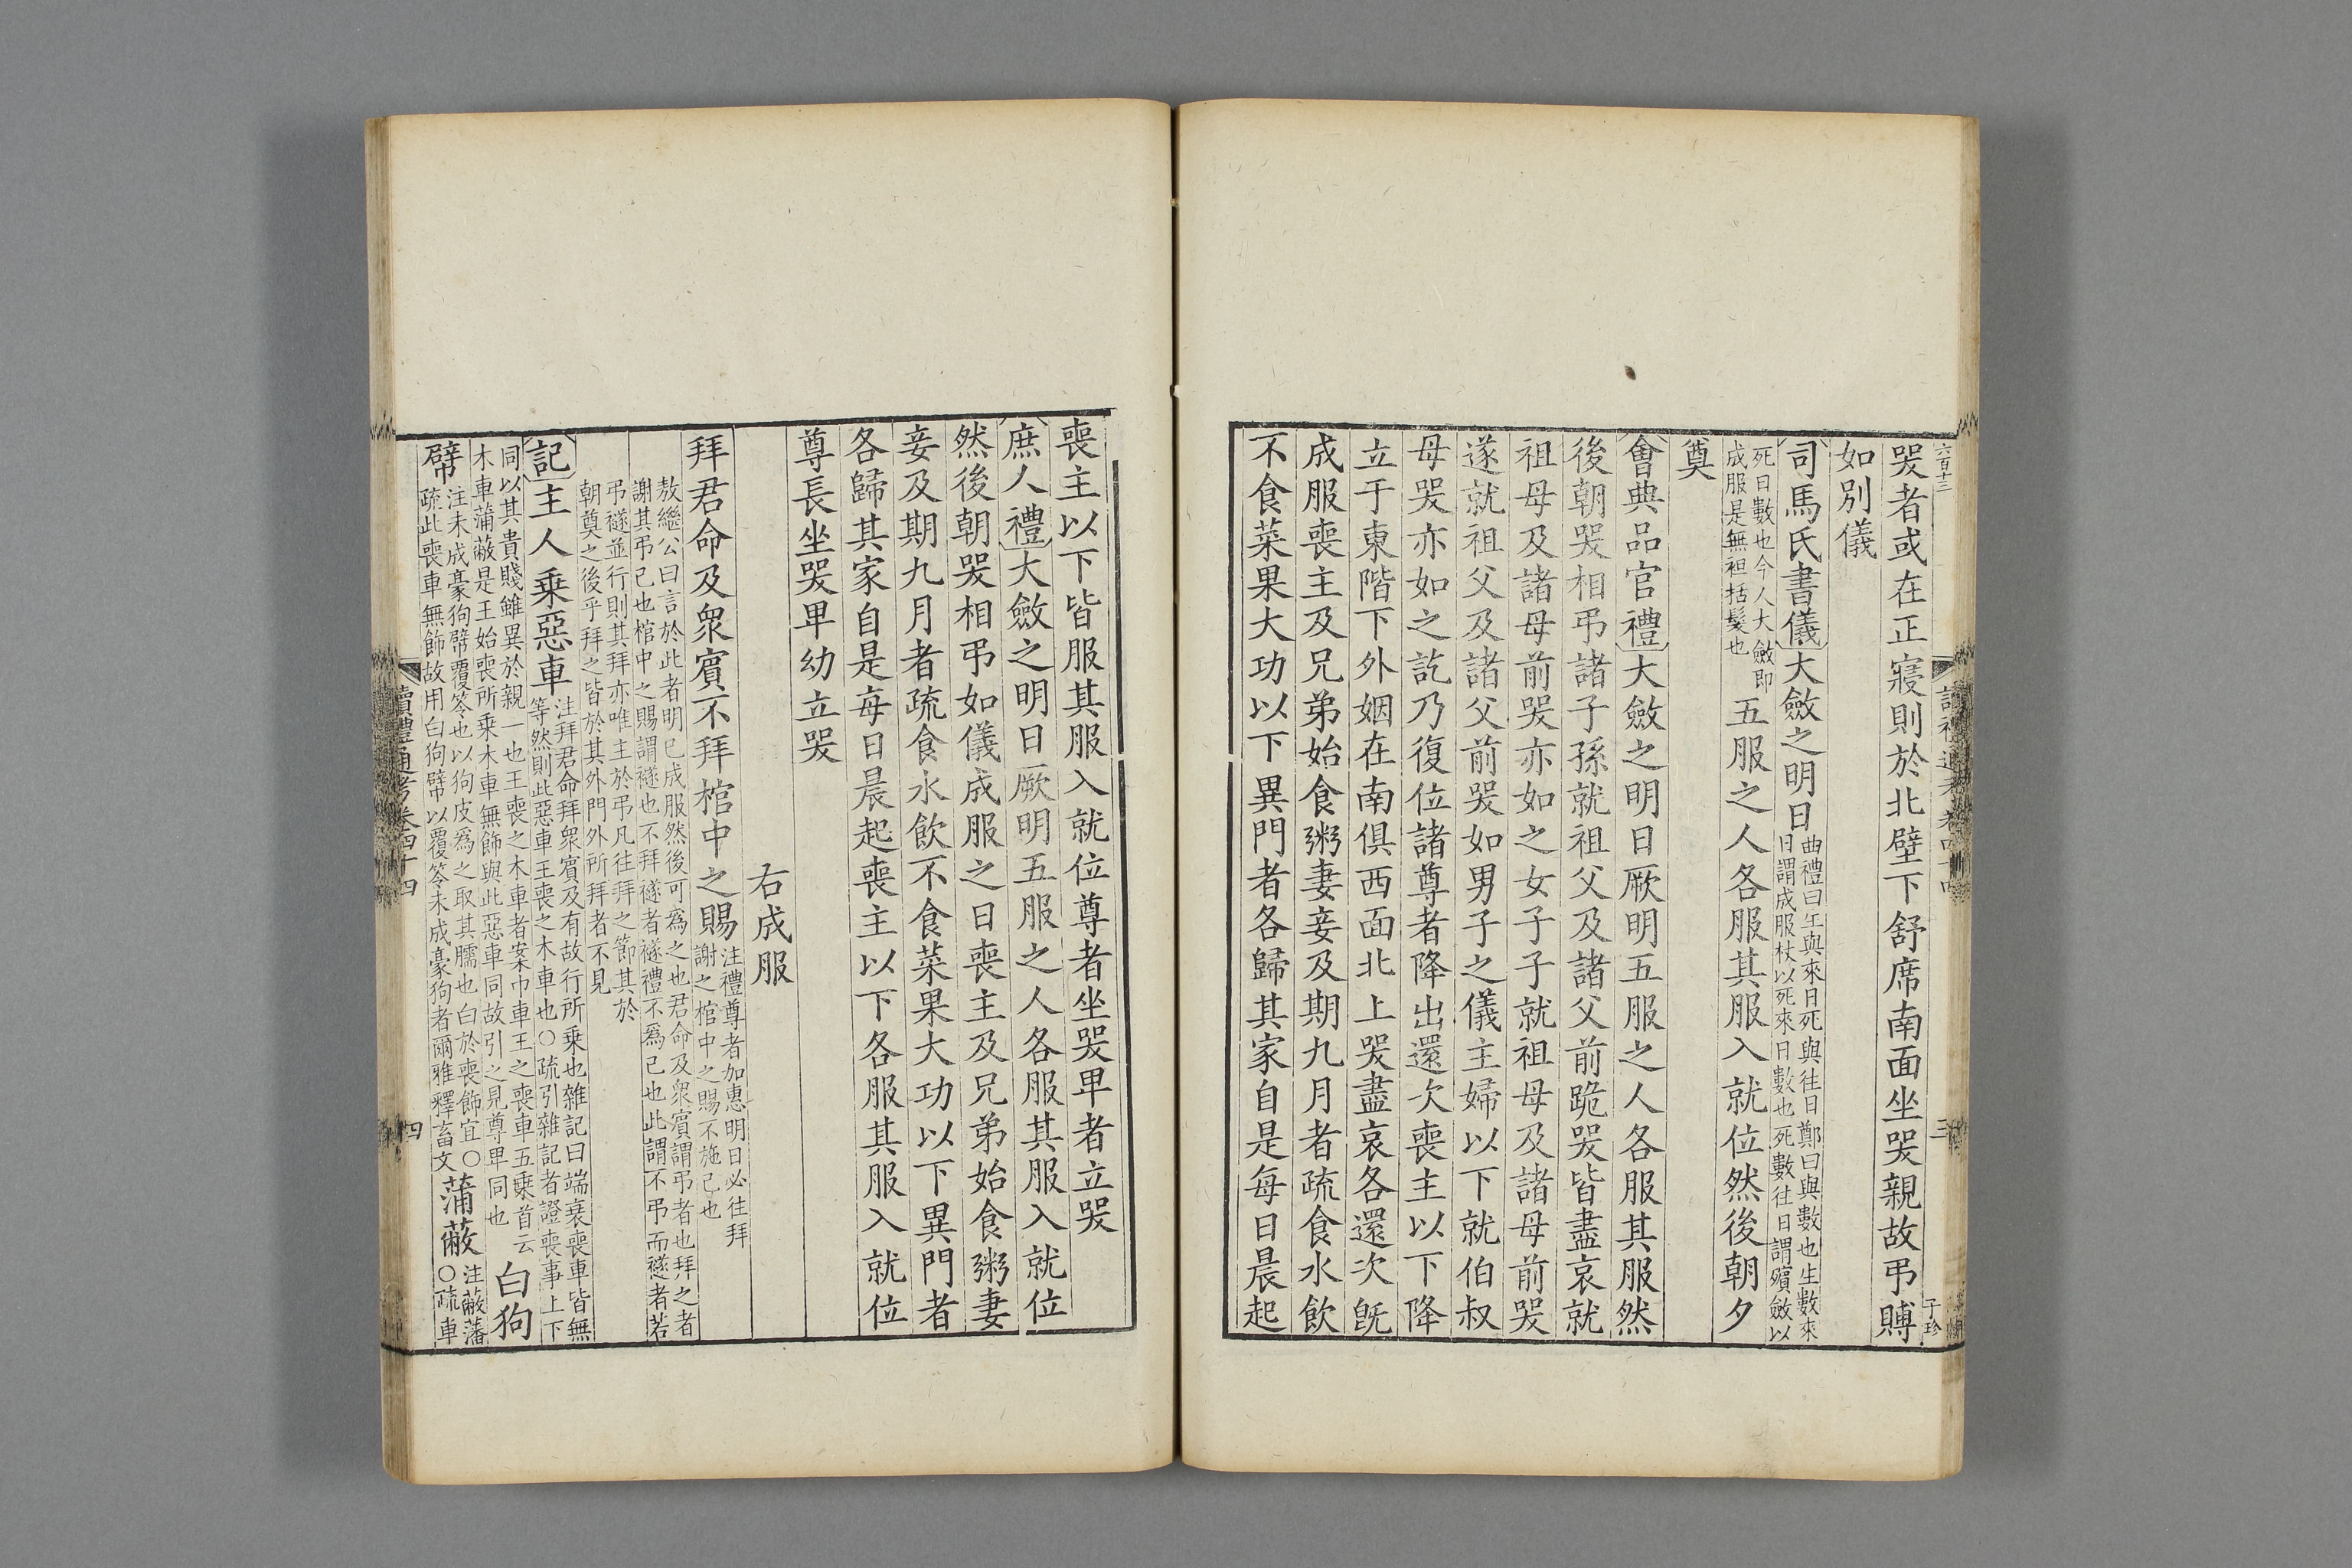 六百十三
讀禮通考卷四十四
三
子珍
哭者或在正寢則於北壁下舒席南面坐哭親故弔賻
如別儀
司馬氏書儀大斂之明日曲禮曰生與來日死與往日鄭曰與數也生數來
日謂成服杖以死來日數也死數往日謂殯斂以
死日數也今人大斂即
成服是無袒括髮也五服之人各服其服入就位然後朝夕
奠
會典品官禮大斂之明日厥明五服之人各服其服然
後朝哭相弔諸子孫就祖父及諸父前跪哭皆盡哀就
祖母及諸母前哭亦如之女子子就祖母及諸母前哭
遂就祖父及諸父前哭如男子之儀主婦以下就伯叔
母哭亦如之訖乃復位諸尊者降出還次喪主以下降
立于東階下外姻在南俱西面北上哭盡哀各還次旣
成服喪主及兄弟始食粥妻妾及期九月者疏食水飲
不食菜果大功以下異門者各歸其家自是每日晨起
喪主以下皆服其服入就位尊者坐哭卑者立哭
庶人禮大斂之明日厥明五服之人各服其服入就位
然後朝哭相弔如儀成服之日喪主及兄弟始食粥妻
妾及期九月者疏食水飲不食菜果大功以下異門者
各歸其家自是每日晨起喪主以下各服其服入就位
尊長坐哭卑幼立哭
右成服
拜君命及衆賓不拜棺中之賜注禮尊者加惠明日必往拜
謝之棺中之賜不施己也
敖繼公曰言於此者明已成服然後可爲之也君命及衆賓謂弔者也拜之者
謝其弔己也棺中之賜謂襚也不拜襚者襚禮不爲己也此謂不弔而襚者若
弔襚並行則其拜亦唯主於弔凡往拜之節其於
朝奠之後乎拜之皆於其外門外所拜者不見
記主人乘惡車注拜君命拜衆賓及有故行所乘也雜記曰端衰喪車皆無
等然則此惡車王喪之木車也○疏引雜記者證喪事上下
同以其貴賤雖異於親一也王喪之木車者案巾車王之喪車五乘首云
木車蒲蔽是王始喪所乘木車無飾與此惡車同故引之見尊卑同也白狗
幦注未成豪狗幦覆笭也以狗皮爲之取其臑也白於喪飾宜○
疏此喪車無飾故用白狗幦以覆笭未成豪狗者爾雅釋畜文蒲蔽注蔽藩
○疏車
讀禮通考卷四十四
四